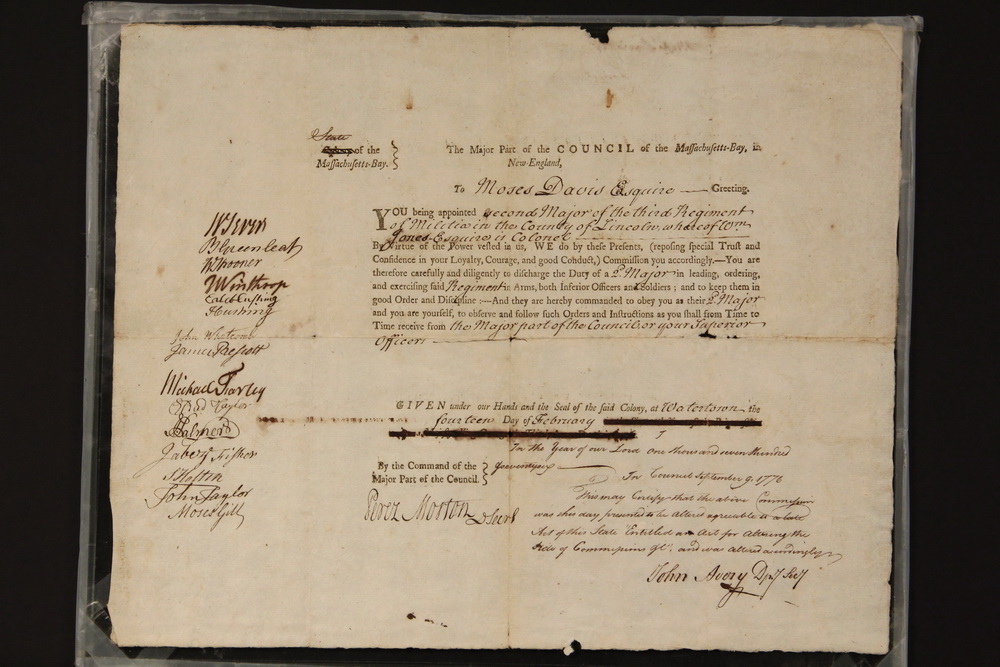 State
of the
Massachusetts-Bay.
The Major Part of the COUNCIL of the Massachusetts-Bay, in
New-England,
To Moses Davis Esquire Greeting.
YOU being appointed second Major of the third Regiment
of Militia in the County of Lincoln, whereof Wm
Jones Esquire is Colonel
By Virtue of the Power vested in us, WE do by these Presents, (reposing special Trust and
Confidence in your Loyalty, Courage, and good Conduct,) Commission you accordingly.—You are
therefore carefully and diligently to discharge the Duty of a 2d Major in leading, ordering,
and exercising said Regiment in Arms, both Inferior Officers and Soldiers; and to keep them in
good Order and Discipline:—And they are hereby commanded to obey you as their 2d Major
and you are yourself, to observe and follow such Orders and Instructions as you shall from Time to
Time receive from the Major part of the Council, or your Superior
Officers
W Sever
B Greenleaf
W Spooner
J Winthrop
Caleb Cushing
T Cushing
John Whetcomb
James Prescott
Michael Farley
Taylor
J Palmer
Jabez Fisher
S Holten
John Taylor
Moses Gill
GIVEN under our Hands and the Seal of the said Colony, at Watertown the
fourteen Day of February
In the Year of our Lord One thousand seven hundred
By the Command of the
Major Part of the Council.
Perez Morton D Secry
In Council September 9. 1776
This may Certify that the above Commission
was this day presented to be Altered agreeable to a late
Act of this State Entitled an Act for Altering the
Stile of Commissions &c. and was altered accordingly
John Avery Dpy Secy